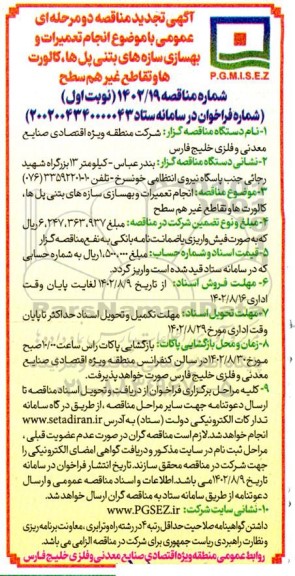 آگهی تجدید مناقصه دو مرحله ای
عمومی با موضوع انجام تعمیرات و
بهسازی سازه های بتنی پل ها، کالورت
ها و تقاطع غیر هم سطح
P.G.M.I.S.E.Z
شماره مناقصه ۱۴۰۲/۱۹ (نوبت اول)
(شماره فراخوان در سامانه ستاد ۲۰۰۲۰۰۴۳۴۰۰۰۰۰۴۳)
۱- نام دستگاه مناقصه گزار: شرکت منطقه ویژه اقتصادی صنایع
معدنی و فلزی خلیج فارس
۲- نشانی دستگاه مناقصه گزار: بندرعباس - کیلومتر ۱۳ بزرگراه شهید
رجائی جنب پاسگاه نیروی انتظامی خونسرخ - تلفن ۱۰-۳۳۵۹۲۲۰۱ (۰۷۶)
۳- موضوع مناقصه: انجام تعمیرات و بهسازی سازه های بتنی پل ها،
کالورت ها و تقاطع غیر هم سطح
۴- مبلغ و نوع تضمین شرکت در مناقصه: مبلغ ۶,۲۴۷,۳۶۳,۹۳۷ ریال
که به صورت فیش واریزی یا ضمانت نامه بانکی به نفع مناقصه گزار
۵- قیمت اسناد و شماره حساب: مبلغ ۱,۵۰۰,۰۰۰ ریال به شماره حسابی
که در سامانه ستاد قید شده است واریز گردد.
۶- مهلت فروش اسناد: از تاریخ ۱۴۰۲/۸/۹ لغایت پایان وقت
اداری ۱۴۰۲/۸/۱۶
۷- مهلت تحویل اسناد: مهلت تکمیل و تحویل اسناد حداکثر تا پایان
وقت اداری مورخ ۱۴۰۲/۸/۲۹
۸- زمان و محل بازگشایی پاکات: بازگشایی پاکات راس ساعت ۱۰/۰۰ صبح
مورخ ۱۴۰۲/۸/۳۰ در سالن کنفرانس منطقه ویژه اقتصادی صنایع
معدنی و فلزی خلیج فارس صورت خواهد پذیرفت.
۹- کلیه مراحل برگزاری فراخوان از دریافت و تحویل اسناد مناقصه تا
ارسال دعوتنامه جهت سایر مراحل مناقصه، از طریق درگاه سامانه
تدارکات الکترونیکی دولت (ستاد) به آدرس www.setadiran.ir
انجام خواهد شد. لازم است مناقصه گران در صورت عدم عضویت قبلی،
مراحل ثبت نام در سایت مذکور و دریافت گواهی امضای الکترونیکی را
جهت شرکت در مناقصه محقق سازند. تاریخ انتشار فراخوان در سامانه
تاریخ ۱۴۰۲/۸/۹ می باشد. اطلاعات و اسناد مناقصه عمومی و ارسال
دعوتنامه از طریق سامانه ستاد به مناقصه گران ارسال خواهد شد.
۱۰- نشانی سایت شرکت: www.PGSEZ.ir
داشتن گواهینامه صلاحیت حداقل رتبه ۴ در رشته راه و ترابری، معاونت برنامه ریزی
و نظارت راهبردی ریاست جمهوری برای شرکت در مناقصه الزامی می باشد.
روابط عمومی منطقه ویژه اقتصادی صنایع معدنی و فلزی خلیج فارس